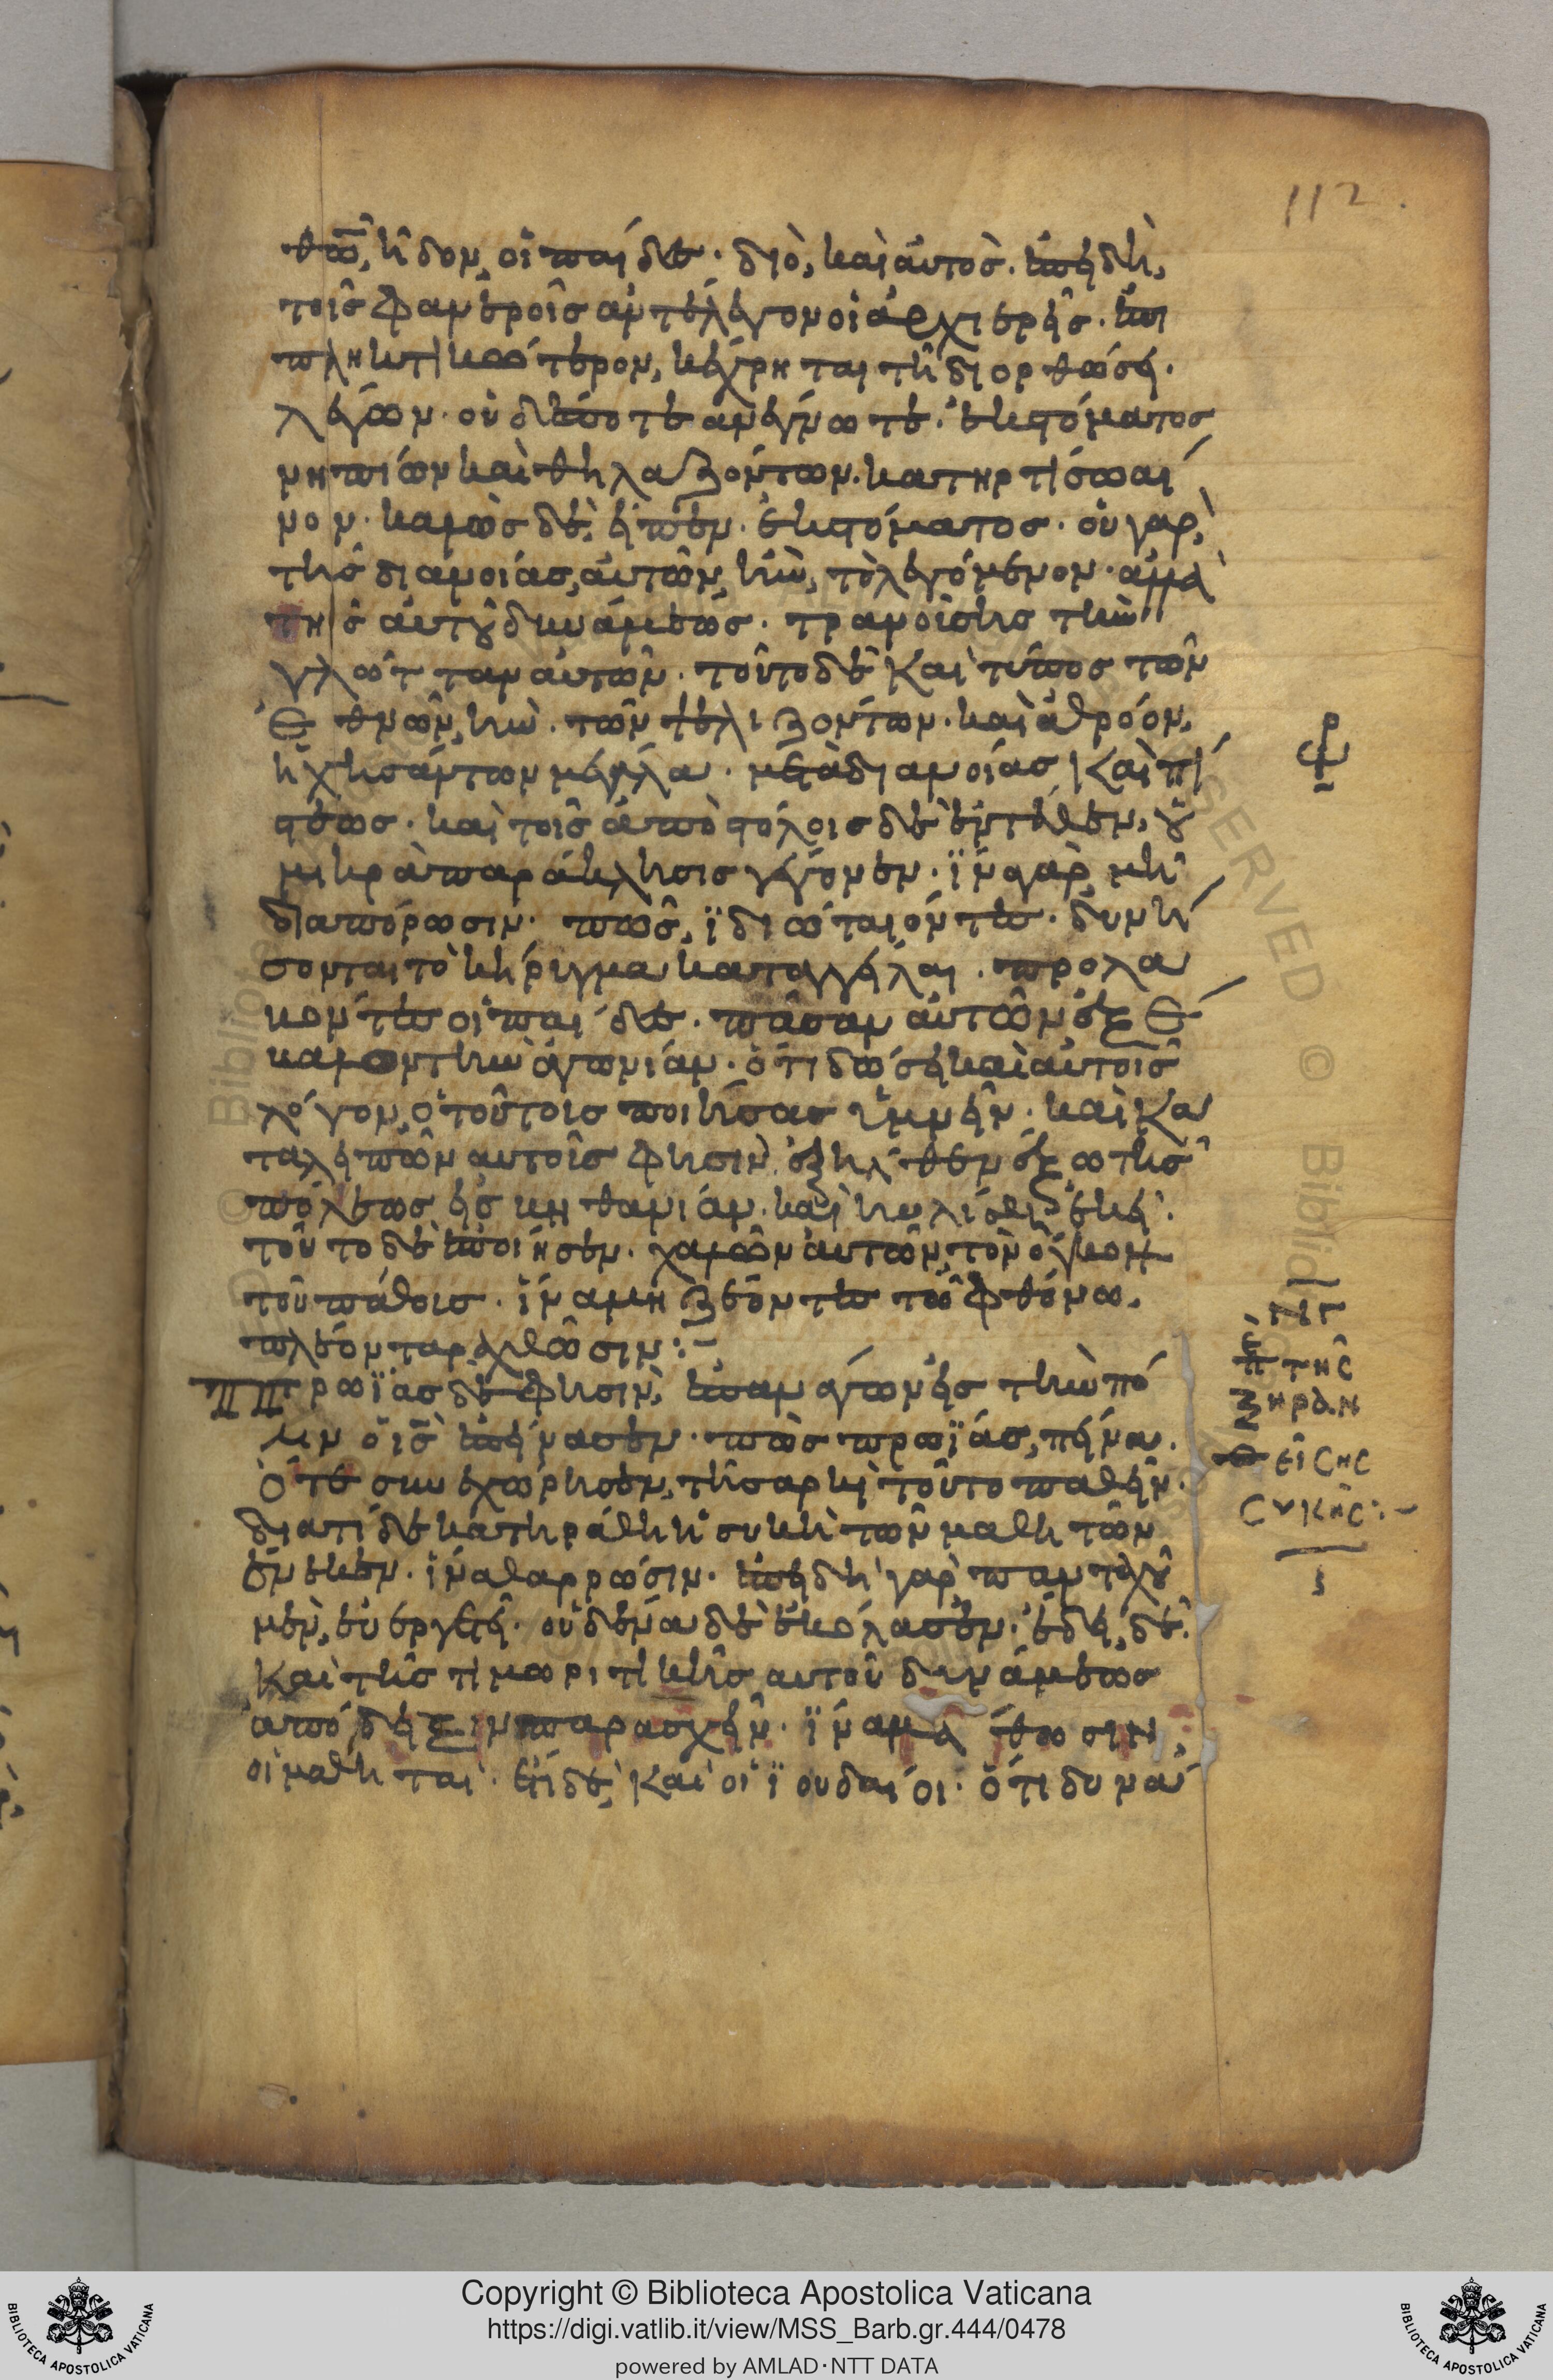 112
θῶ, ᾖδον, οἱ παῖδες· διὸ, καὶ αὐτὸς. ἐπειδὴ,
τοῖς φανεροῖς ἀντέλεγον οἱ ἀρχιερεῖς. ἐπι
πληκτικώτερον, κέχρηται τῆ διορθώσει.
λέγων· οὐδέποτε ἀνέγνωτε. ἐκ στόματος
νηπίων καὶ θηλαζόντων. κατηρτίσω αἶ
νον· καλῶς δὲ, εἶπεν. ἐκ στόματος. οὐ γαρ,
τῆς διανοίας, αὐτῶν, ἦν, τὸ λεγόμενον· ἀλλὰ
τῆς αὐτοῦ δυνάμεως. τρανούσης τὴν
γλῶτταν αὐτῶν. τοῦτο δὲ καὶ τύπος τῶν
ἐθνῶν, ἦν. τῶν ψελλιζόντων. καὶ ἀθρόον,
ἠχησάντων μεγάλα. μετὰ διανοίας καὶ πί
στεως. καὶ τοῖς ἀποστόλοις δὲ ἐντεῦθεν, οὐ
μικρὰ παράκλησις γέγονεν. ἵνα γὰρ μὴ
διαπόρωσιν. πῶς, ἰδιῶται ὄντες. δυνή
σονται τὸ κήρυγμα καταγγεῖλαι. προλα
βόντες οἱ παῖδες. πᾶσαν αὐτῶν ἐξέ
βαλον τὴν ἀγωνίαν. ὅτι δώσει καὶ αὐτοῖς
λόγον, ὁ τούτοις ποιήσας ὑμνεῖν. καὶ κα
ταλειπὼν αὐτοῖς φησιν. ἐξῆλθεν ἔξω τῆς
πόλεως εἰς βηθανίαν. καὶ ηὐλίσθη ἐκεῖ.
τοῦτο δὲ ἐποίησεν. χαλῶν αὐτῶν, τὸν ὄγκον
τοῦ πάθους. ἵνα μὴ ζέοντες τῶ φθόνω.
πλέον ταραχθῶσιν:-
πρωΐας δὲ φησιν, ἐπαναγων εἰς τὴν πό
λιν ὁ ις ἐπείνασεν. πῶς πρωΐας, πεινᾶ.
ὅτε συνεχώρησεν, τῆ σαρκὶ τοῦτο παθεῖν.
διατί δὲ κατηράθη ἡ συκῆ τῶν μαθητῶν
ἕνεκεν. ἵνα θαρρώσιν. ἐπειδὴ γὰρ πανταχοῦ
μὲν, εὐεργέτει. οὐδένα δὲ ἐκόλασεν. ἔδει, δὲ.
καὶ τῆς τιμωρητικῆς αὐτοῦ δυνάμεως
ἀπόδειξιν παρασχεῖν. ἵνα μάθωσιν
οἱ μαθηταὶ. ἔτι δὲ, καὶ οἱ ἰουδαῖοι. ὅτι δυνά
ΝΓ
π τῆς
ξηραν
θείσης
συκῆς:-